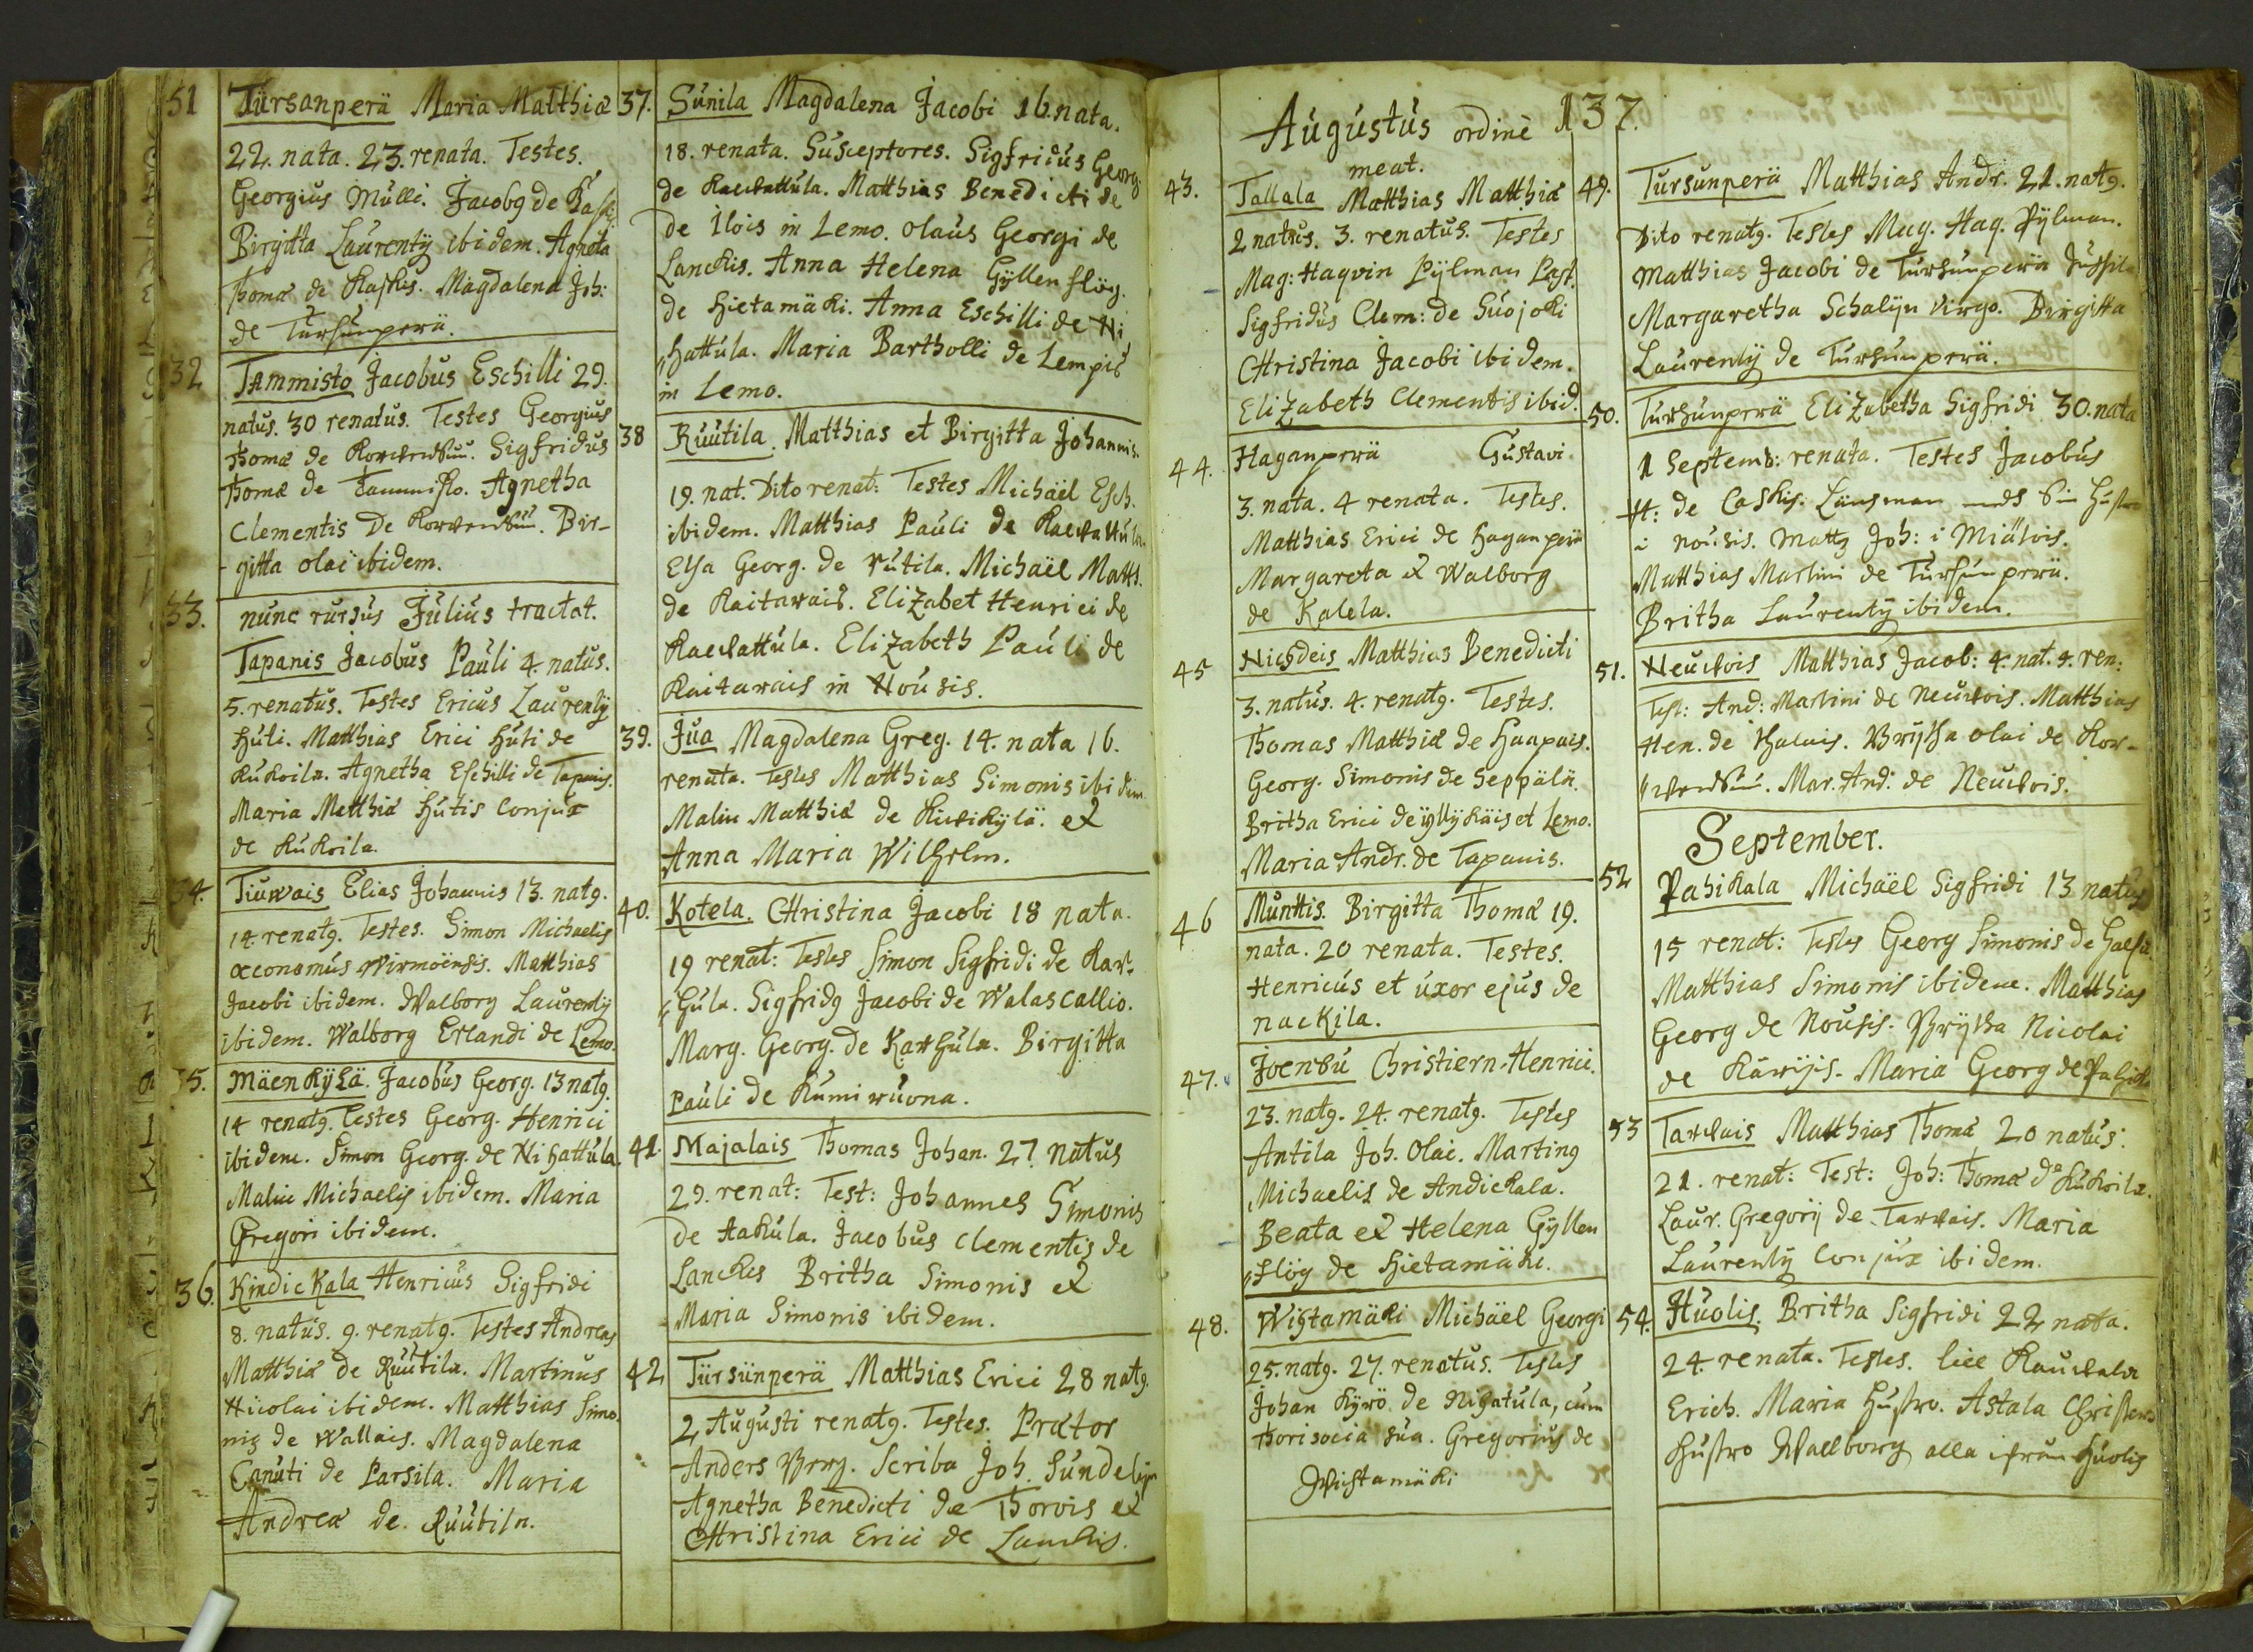 51 Türsanperä Maria Matthiæ
22. nata. 23. renata. Testes.
Georgius Mulli. Jacobg de Kaski
Birgitta Laurentÿ ibidem. Agneta
Thomæ de Kaskis. Magdalena Joh:
de Tursunperä.
32 Tammisto Jacobus Eschilli 29.
natus. 30 renatus. Testes Georgius
Thomæ de Sigfridus
Thomæ de Tammisto. Agnetha
Clementis De Bir-
- gitta olai ibidem.
33. nunc rursus Julius tractat.
Tapanis Jacobus Pauli 4. natus.
5. renatus. Testes Ericus Laurentÿ
Huti. Matthias Erici Huti de
Kukoila. Agnetha Eschilli de Tapanis.
Maria Matthiæ Hutis Conjux
de Kukoila.
34. Tiuvais Elias Johannis 13. natg.
14 renatg. Testes. Simon Michaelis
œconomus Wirmoënsis. Matthias
Jacobi ibidem. Walborg Laurentÿ
ibidem. Walborg Erlandi de Lemo.
35. Mäenkÿlä. Jacobus Georg. 13 natg.
14 renatg. Testes Georg. Henrici
ibidem. Simon Georg. de Nihattula.
Malin Michaelis ibidem. Maria
Gregori ibidem.
36. Kindickala Henricus Sigfridi
8. natus. 9. renatg. Testes Andreas
Matthiæ de Ruutila. Martinus
Nicolai ibidem. Matthias Simo
nis de Wallais. Magdalena
Canuti de Parsila. Maria
Andreæ de Ruutila.
37. Sunila Magdalena Jacobi 16. nata.
18. renata. Susceptores. Sigfridus Georg
de Kaevattula. Matthias Benedicti de
de Ilois in Lemo. Olaus Georgi de
Lanckis. Anna Helena Gÿllenflög.
de Hietamäki. Anna Eschilli de Ni
hattula. Maria Bartholli de Lempis
in Lemo.
38 Ruutila. Matthias et Birgitta Johannis.
19. nat. Dito renat: Testes Michaël Esch.
ibidem. Matthias Pauli de Kaevattula
Elsa Georg. de Rutila. Michaël Matth.
de Raitavais. Elizabet Henrici de
Kaevattula. Elizabeth Pauli de
Raitavais in Nousis.
39. Jua Magdalena Greg. 14. nata 16.
renata. Testes Matthias Simonis ibidem
Malin Matthiæ de Kivikÿlä. et
Anna Maria Wilhelm.
40. Kotela. Christina Jacobi 18 nata.
19 renat: Testes Simon Sigfridi de Kar-
hula. Sigfridg Jacobi de Walascallio.
Marg. Georg. de Karhula. Birgitta
Pauli de Kumiwuona.
41. Majalais Thomas Johan. 27 natus
29. renat: Test: Johannes Simonis
de Hakula. Jacobus Clementis de
Lanckis Britha Simonis et
Maria Simonis ibidem.
42 Türsünperä Matthias Erici 28 natg.
2 Augusti renatg. Testes. Prætor
Anders Scriba Joh. Sundelijn
Agnetha Benedicti de Thorvis et
Christina Erici de Lanckis.
137.
Augustus ordine
meat.
43. Tallala Matthias Matthiæ
2 natus. 3. renatus. Testes
Mag: Haqvin Pÿlman Past.
Sigfridus Clem: de Suojoki
Christina Jacobi ibidem.
Elizabeth Clementis ibid.
44. Haganperä Gustavi.
3. nata. 4 renata. Testes.
Matthias Erici de Haganperä
Margareta et Walborg
de Kalela.
45 Nicsdeis Matthias Benedicti
3. natus. 4. renatg. Testes.
Thomas Matthiæ de Haapais.
Georg. Simonis de Seppälä.
Britha Erici de ÿllÿkäis et Lemo.
Maria Andr. de Tapanis.
46 Munttis. Birgitta Thomæ 19.
nata. 20 renata. Testes.
Henricus et uxor ejus de
nackila.
47. Joensu Christiern Henrici.
23. natg. 24. renatg. Testes
Antila Joh. Olai. Marting
Michaelis de Andickala.
Beata et Helena Gÿllen
flög de Hietamäki.
48. Wistamäki Michäel Georgi
25. natg. 27. renatus. Testes
Johan Kÿrö de Nihatula, cum
thori socia sua. Gregorius de
Wistamäki
49. Tursunperä Matthias Andr. 21. natg.
Dito renatg. Testes Mag. Haq. Pÿlman.
Matthias Jacobi de Tursunperä
Margaretha Schalijn virgo. Birgitta
Laurentÿ de Tursunperä.
50. Tursunperä Elizabetha Sigfridi 30. nata
1 Septemb: renata. Testes Jacobus
H: de Caskis. Länsman med Sin Hustro
i nousis. Mattz Joh: i Miälois.
Matthias Martini de Tursunperä.
Britha Laurentÿ ibidem.
51. Neuvois Matthias Jacob: 4. nat. 9. ren:
Test: And: Martini de Neuvois. Matthias
Hen. de Brÿtha olai de Kor-
Mar. And: de Neuvois.
September.
52 Pahikala Michaël Sigfridi 13 natus
15 renat: Testes Georg Simonis de
Matthias Simonis ibidem. Matthias
Georg de Nousis. Brÿtha Nicolai
de Kärijs. Maria Georg de Pahik
53 Tarvais Matthias Thomæ 20 natus.
21. renat: Test: Joh: Thomæ de Kukoila.
Laur. Gregorij de Tarvais. Maria
Laurentÿ Conjux ibidem.
54. Huolis. Britha Sigfridi 22 nata.
24. renata. Testes.
Erich. Maria Hustro. Astala Christers
Hustro Wallborg alla ifrån Huolis